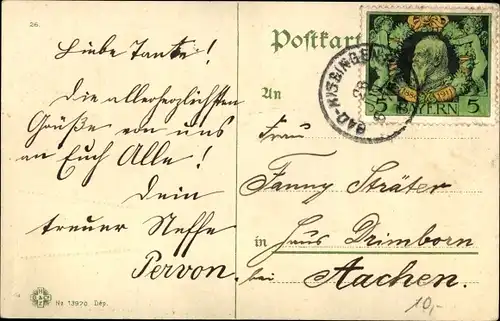 26.
Liebe Tante!
Die allerherzlichsten
Grüße von uns
an Euch Alle!
Dein
treuer Neffe
Pervon.
No 13970 Dép.
Postkart
An
BAD KISSINGEN
5 BAYERN 5
Frau
Fanny Sträter
in Haus Drimborn
bei Aachen.
10,-